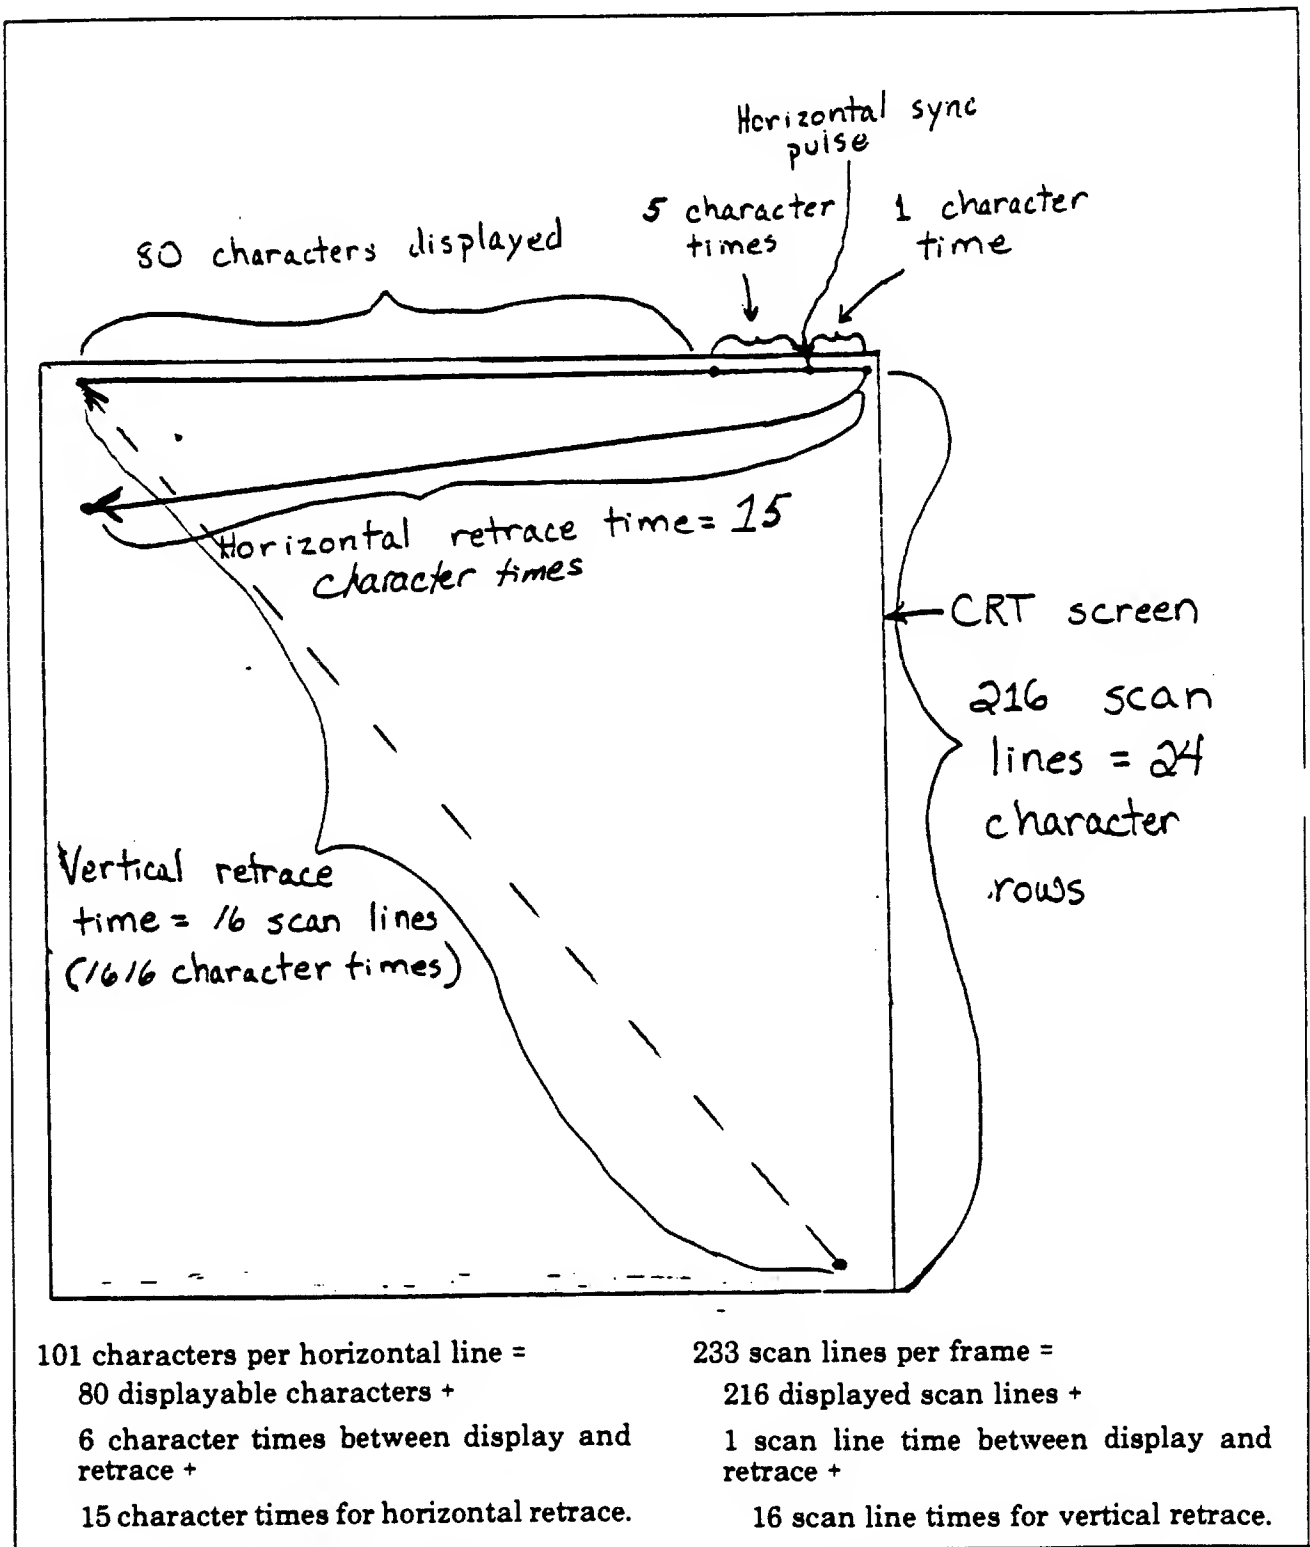 Horizontal sync
pulse
5 character
times
1 character
time
80 characters displayed
Horizontal retrace time = 15
character times
CRT screen
216 scan
lines = 24
character
rows
Vertical retrace
time = 16 scan lines
(1616 character times)
101 characters per horizontal line =
80 displayable characters +
6 character times between display and
retrace +
15 character times for horizontal retrace.
233 scan lines per frame =
216 displayed scan lines +
1 scan line time between display and
retrace +
16 scan line times for vertical retrace.